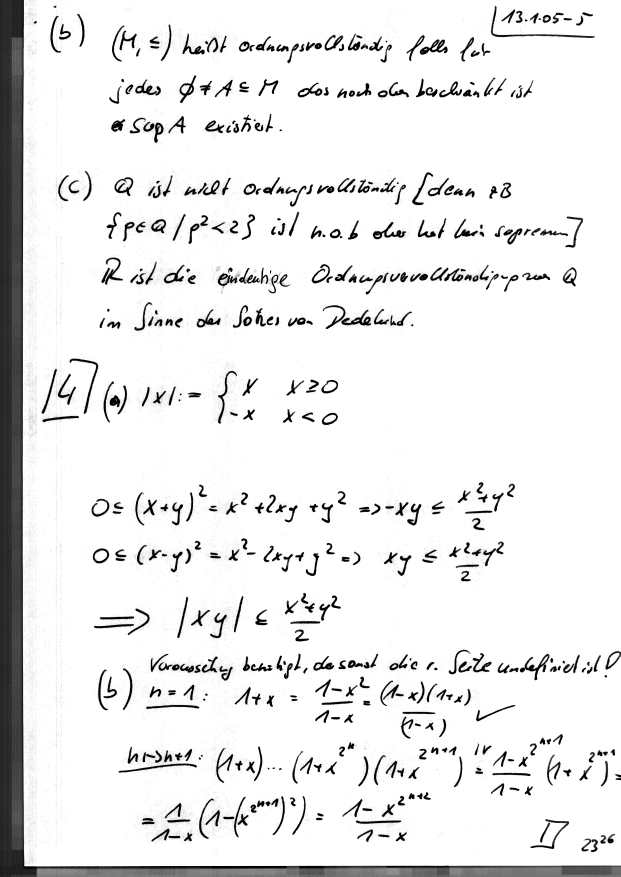 13.1.05-5
(b) (M, ≤) heißt ordnungsvollständig falls für
jedes ∅ ≠ A ⊆ M das nach oben beschränkt ist
Sup A existiert.
(c) Q ist nicht ordnungsvollständig [denn zB
{p∈Q / p² < 2} ist n.o.b aber hat kein supremum]
ℝ ist die eindeutige Ordnungsvervollständigung von Q
im Sinne des Satzes von Dedekind.
14 (a) |x| := { x x ≥ 0
-x x < 0
0 ≤ (x+y)² = x² + 2xy + y² => -xy ≤ (x²+y²)/2
0 ≤ (x-y)² = x² - 2xy + y² => xy ≤ (x²+y²)/2
⟹ |xy| ≤ (x²+y²)/2
Voraussetzung benötigt, da sonst die r. Seite undefiniert ist!
(b) n=1: 1+x = (1-x²)/(1-x) = (1-x)(1+x)/(1-x) ✓
n->n+1: (1+x)...(1+x^{2^n})(1+x^{2^{n+1}}) =^{IV} (1-x^{2^{n+1}})/(1-x) (1+x^{2^{n+1}}) =
= 1/(1-x) (1-(x^{2^{n+1}})²) = (1-x^{2^{n+2}})/(1-x)
23²⁶